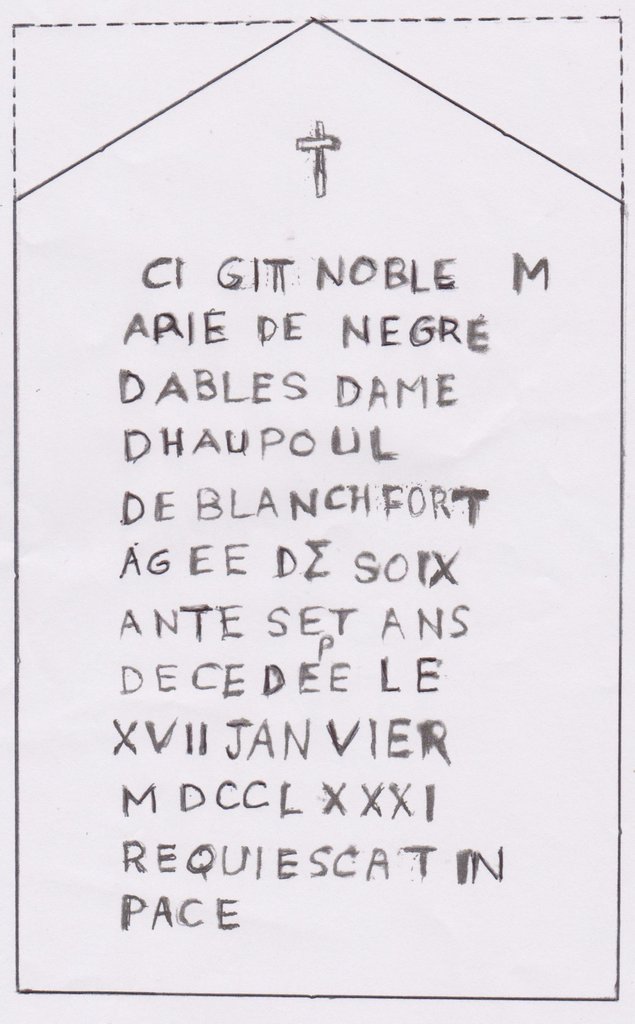 CI GIT NOBLE M
ARIE DE NEGRE
DABLES DAME
DHAUPOUL
DE BLANCHFORT
AGEE DE SOIX
ANTE SET ANS
P
DECEDEE LE
XVII JANVIER
MDCCLXXXI
REQUIESCAT IN
PACE